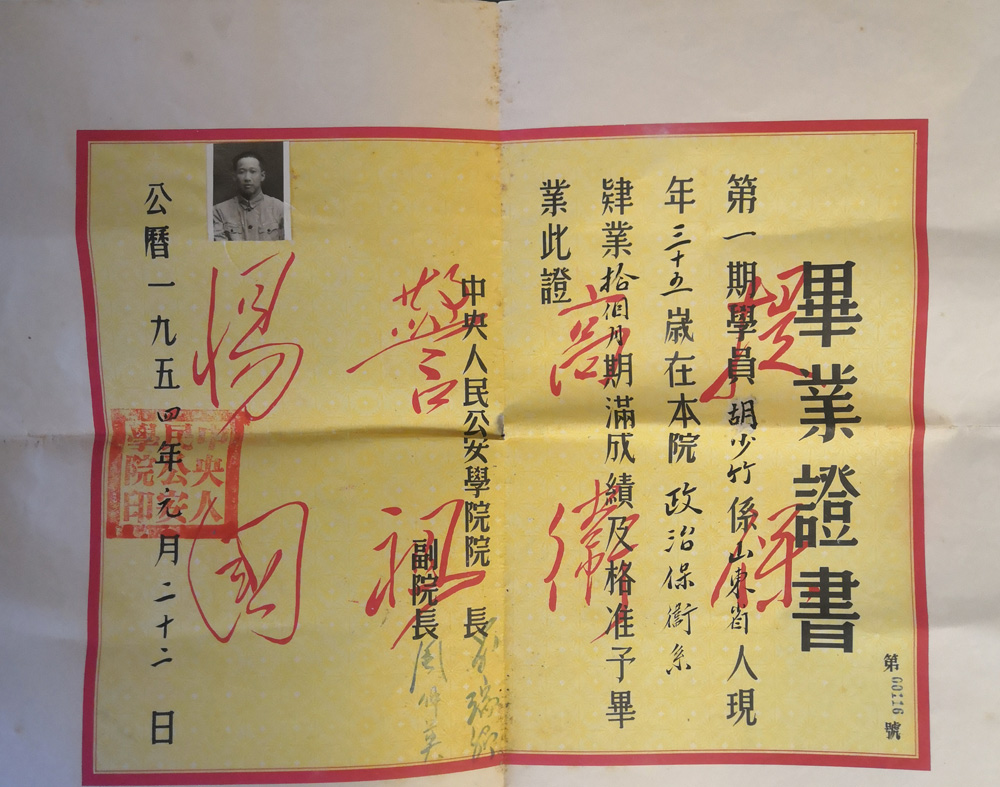 畢業證書
第00116號
第一期學員胡少竹係山東省人現
年三十五歲在本院政治保衞系
肄業拾個月期滿成績及格准予畢
業此證
中央人民公安學院院長
副院長周仲英
公曆一九五四年元月二十二日
提高警惕
保衛祖國
中央人
民公安
學院印